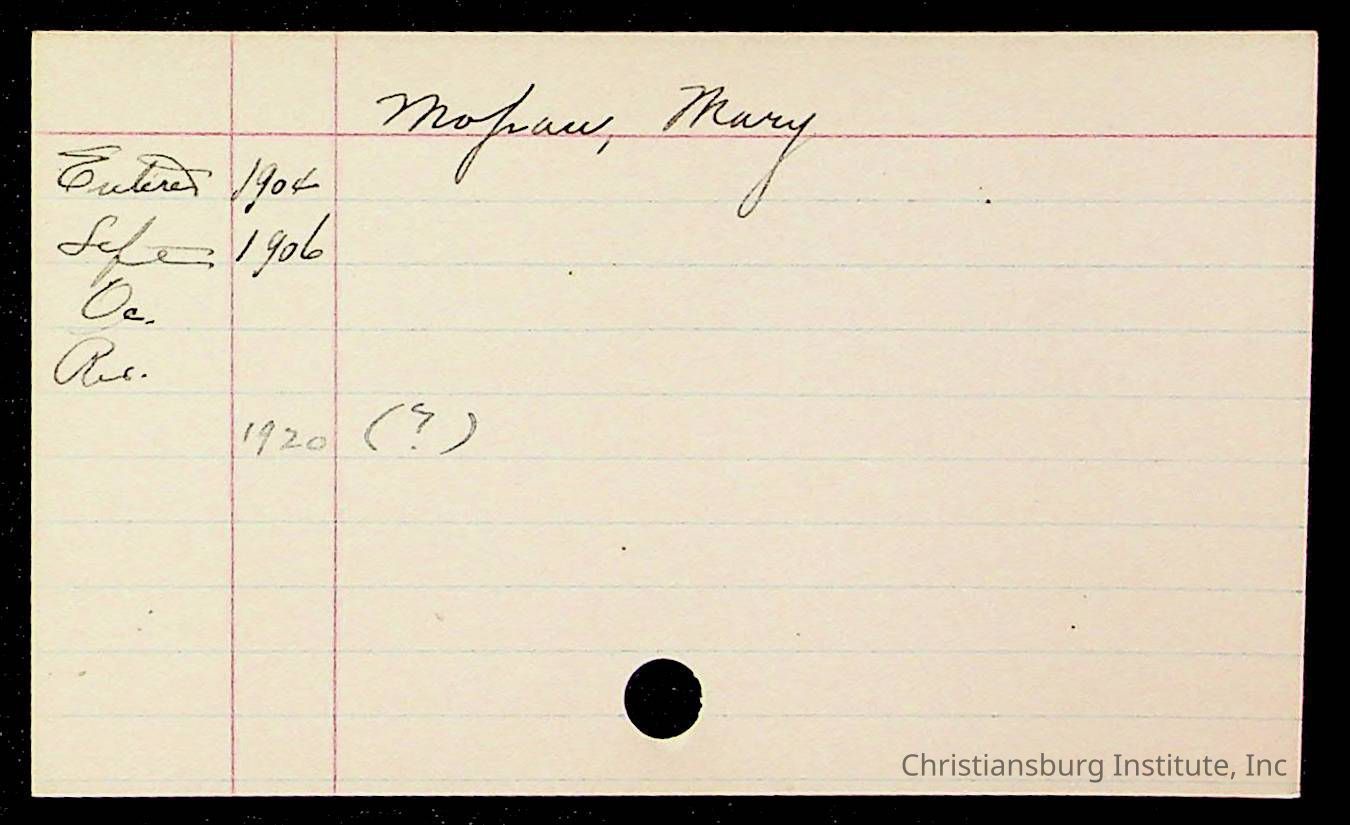 Mopraw, Mary
Entered 1904
Left 1906
Oc.
Res.
1920 (?)
Christiansburg Institute, Inc